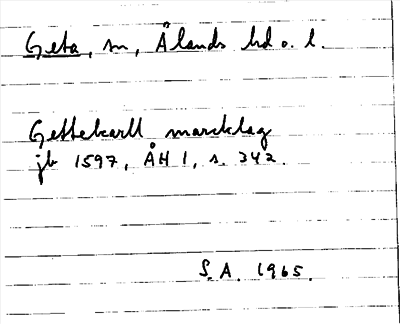 Geta, sn, Ålands hd o. l.
Gettekarll marcklag
jb 1597, ÅH 1, s. 342.
S.A. 1965.